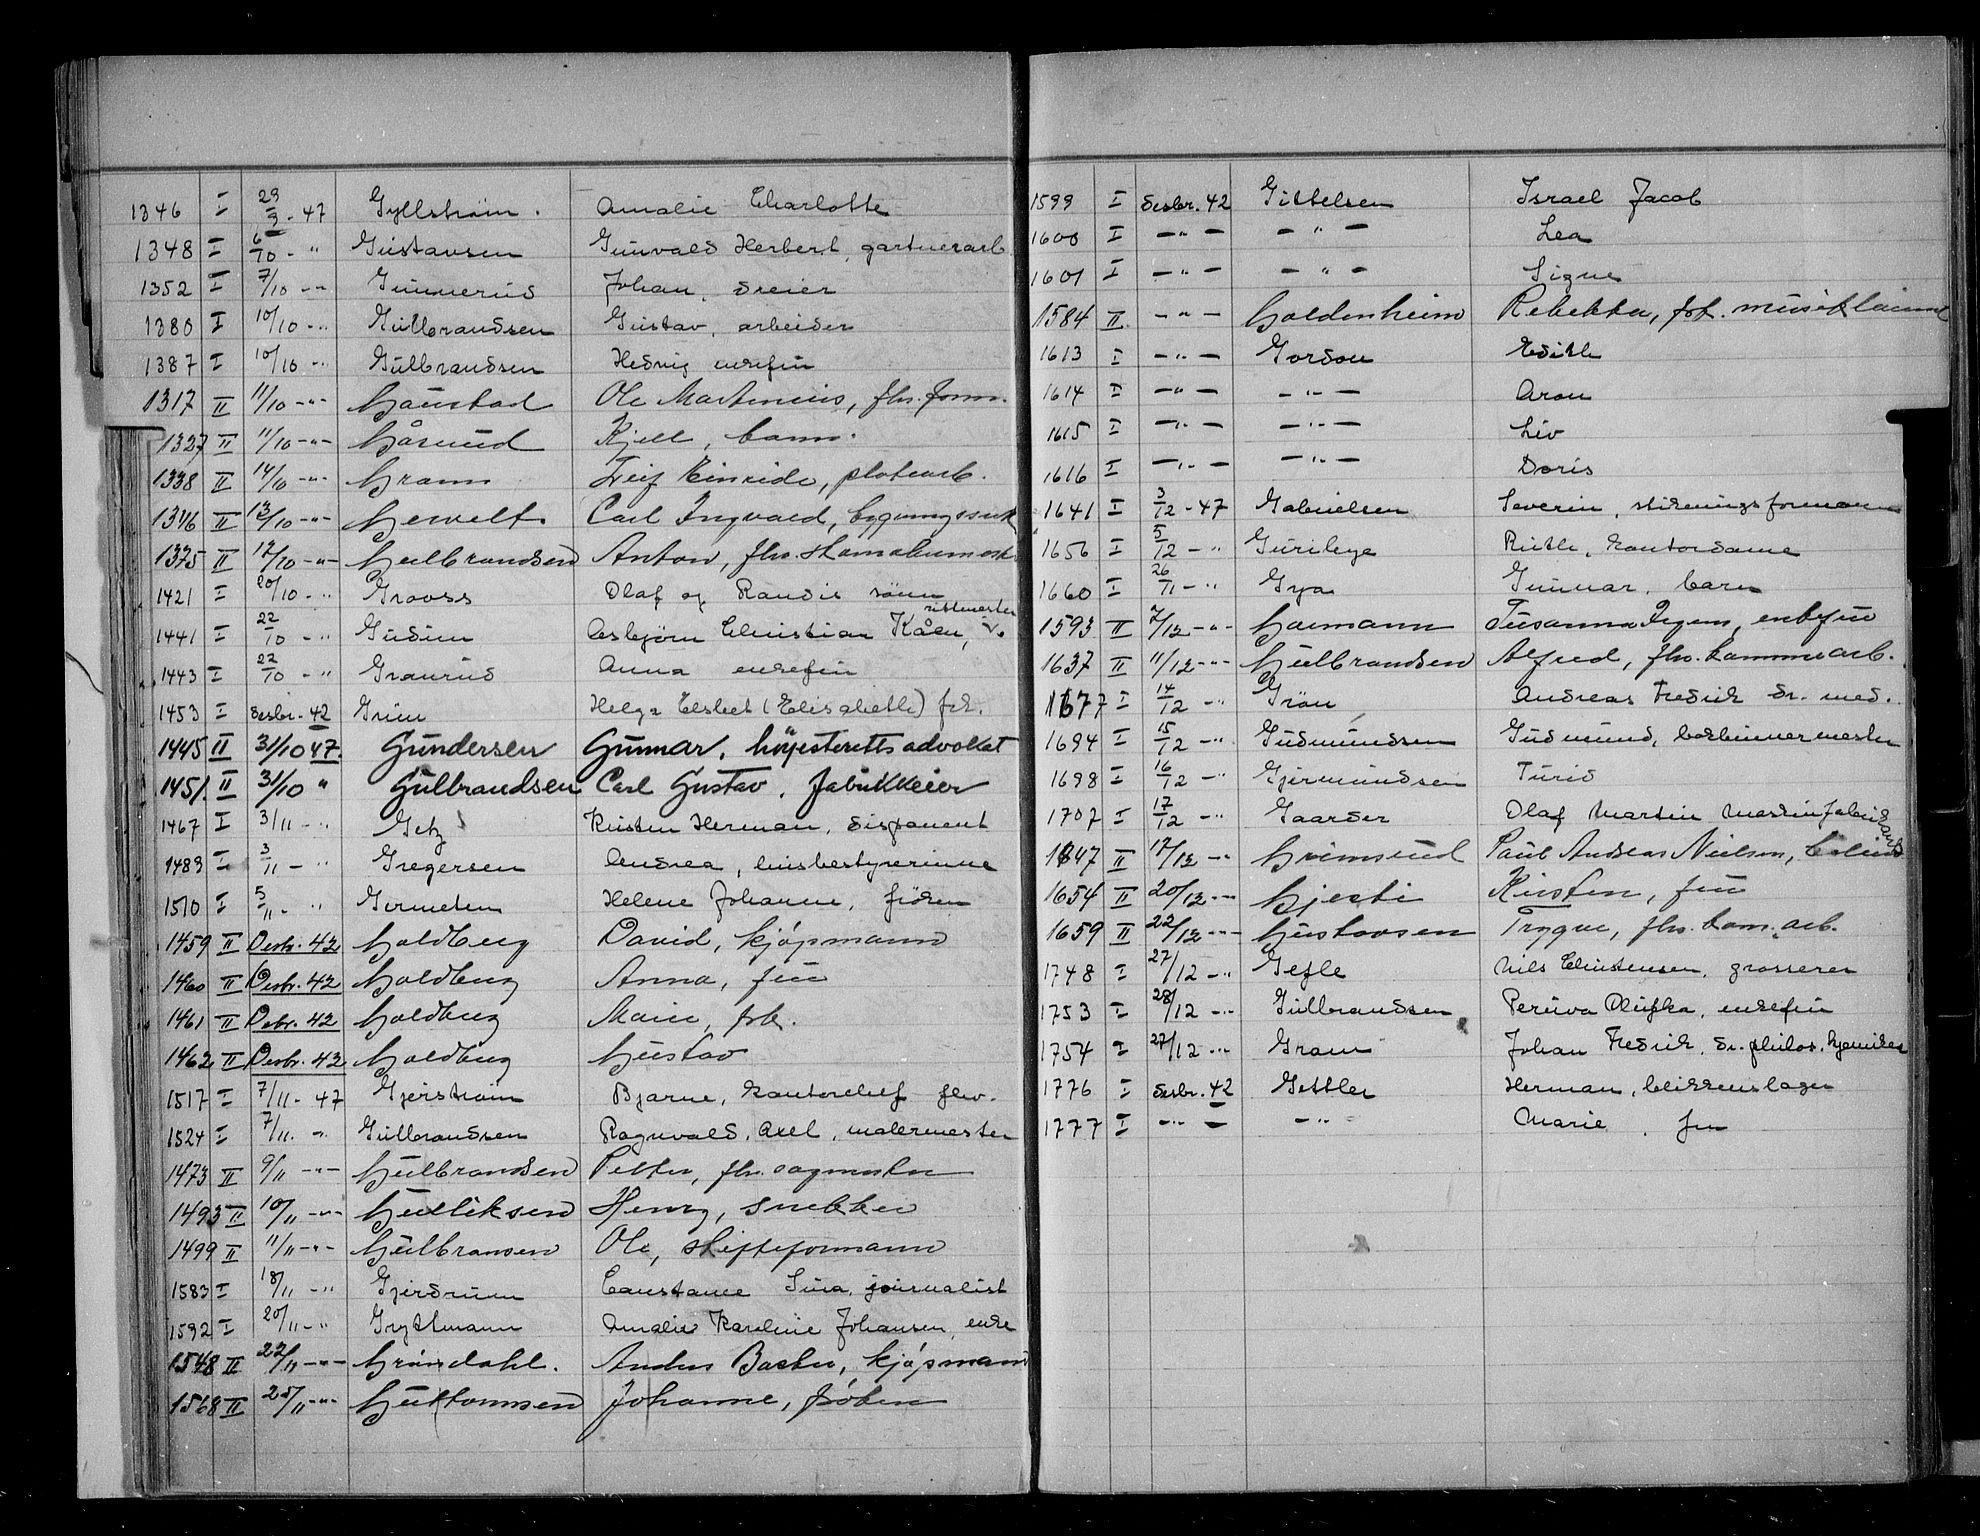 1346 I 29/9 - 47 Gyllstrøm. Amalie Charlotte
1348 I 6/10 - " Gustavsen Gunvald Herbert, gartnerarb.
1352 I 7/10 - " Gunnerud Johan, dreier
1380 I 10/10 - " Gulbrandsen Gustav, arbeider
1387 I 10/10 - " Gulbrandsen Hedvig enkefru
1317 II 11/10 - " - Gaustad Ole Martinius, fhv. form.
1327 II 11/10 - " - Gåsrud Kjell, barn.
1338 II 14/10 - " - Gramm Leif Einride, platearb.
1346 II 13/10 - " - Gewelt Carl Ingvard,
1375 II 17/10 - " - Gulbrandsen Anton, fhv.
1421 I 20/10 - " Grovss Olaf og Randis sønn
1441 I 22/10 - " Gudim Asbjørn Christian Kåen, rittmester
1443 I 22/10 - " Graurud Anna enkefru
1453 I desbr. 42 Grün Helga Elsbet (Elisabeth) frk.
1445 II 31/10 47. Gundersen Gunnar, høyesterettsadvokat
1451. II 31/10 " Gulbrandsen Carl Gustav, fabrikkeier
1467 I 3/11 - " Getz Kristen Herman, disponent
1483 I 3/11 - " Gregersen Andrea, husbestyrerinne
1510 I 5/11 - " Germeten Helene Johanne, frøken
1459 II Desbr. 42 Goldberg David, kjøpmann
1460 II Desbr. 42 Goldberg Anna, fru
1461 II Debr. 42 Goldberg Marie, frk.
1462 II Desbr. 42 Goldberg Gustav
1517 I 7/11 - 47 Gjerstrøm Bjarne, kontorchef fhv.
1524 I 7/11. - " Gulbrandsen Ragnvald, Axel, malermester
1473 II 9/11 - " - Gulbrandsen Petter, fhv. sagmester
1493 II 10/11 - " - Gulliksen Henry, snekker
1499 II 11/11 - " - Gulbransen Ole, skifteformann
1583 I 18/11 - " Gjerdrum Constance Sina, journalist
1592 I 20/11 - " Grythmann Amalie Karoline Johansen, enke
1548 II 22/11 - " - Grøndahl. Anders Backer, kjøpmann
1568 II 25/11 - " - Guttormsen Johanne, frøken
1599 I desbr. 42 Gittelsen Israel Jacob
1600 I - " - - " - Lea
1601 I - " - - " - Signe
1584 II. - " - Goldenheim Rebekka, frk.
1613 I - " - Gordon Edith
1614 I - " - - " - Aron
1615 I - " - - " - Liv
1616 I - " - - " - Doris
1641 I 3/12 - 47 Gabrielsen Severin, stikningsformann
1656 I 5/12 - " Guribye Ruth, kontordame
1660 I 26/11 - " Gya Gunnar, barn
1593 II 7/12 - " - Gaimann Susanna, enkefru
1637 II 11/12 - " - Gulbrandsen Alfred, fhv. kommunearb.
1677 I 14/12 - " Grøn Andreas Fredrik dr. med.
1694 I 15/12 - " Gudmundsen Gudmund, bokbinnermester
1698 I 16/12 - " Gjermundsen Turid
1707 I 17/12 - " Gaarder Olaf Martin maskinfabrikant
1647 II 17/12 - " Grimsrud Paul Andreas Nielsen,
1654 II 20/12 - " - Gjesti Kirsten, fru
1659 II 22/12 - " - Gustavsen Trygve, fhv. kom. arb.
1748 I 27/12 - " Gefle Nils Christensen, grosserer
1753 I 28/12 - " Gulbrandsen enkefru
1754 I 27/12 - " Gram Johan Fredrik, dr. philos. kjemiker
1776 I desbr. 42 Gettler Herman, blikkenslager
1777 I - " - - " - Marie, fru